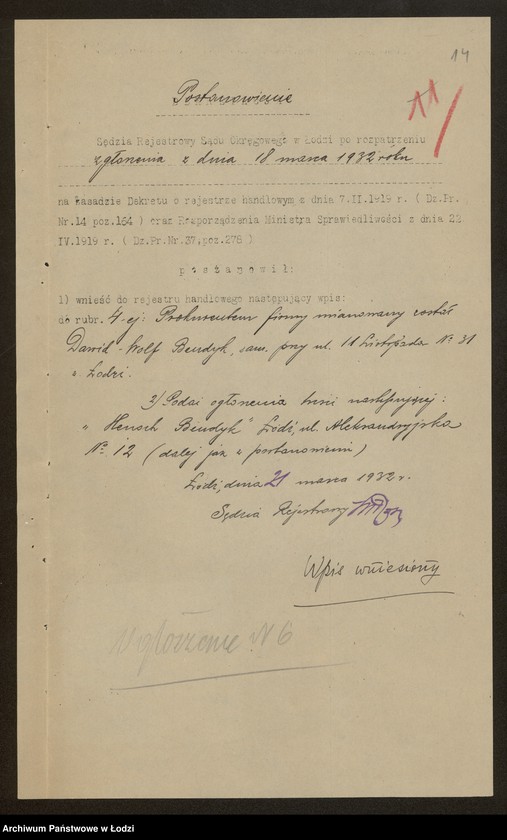 14
11
Postanowienie
Sędzia Rejestrowy Sądu Okręgowego w Łodzi po rozpatrzeniu
zgłoszenia z dnia 18 marca 1932 roku
na zasadzie Dekretu o rejestrze handlowym z dnia 7.II.1919 r. ( Dz.Pr.
Nr.14 poz.164 ) oraz Rozporządzenia Ministra Sprawiedliwości z dnia 22
IV.1919 r. ( Dz.Pr.Nr.37,poz.278 )
postanowił:
1) wnieść do rejestru handlowego następujący wpis:
do rubr. 4-ej: Prokurentem firmy mianowany został
Dawid-Wolf Bendyk, zam. przy ul. 11 Listopada № 31
w Łodzi.
2) Podać ogłoszenia treści następującej:
"Henoch Bendyk" Łódź, ul. Aleksandryjska
№ 12 (dalej jak w postanowieniu)
Łódź, dnia 21 marca 1932 r.
Sędzia Rejestrowy
Wpis wniesiony
№ 6
Archiwum Państwowe w Łodzi